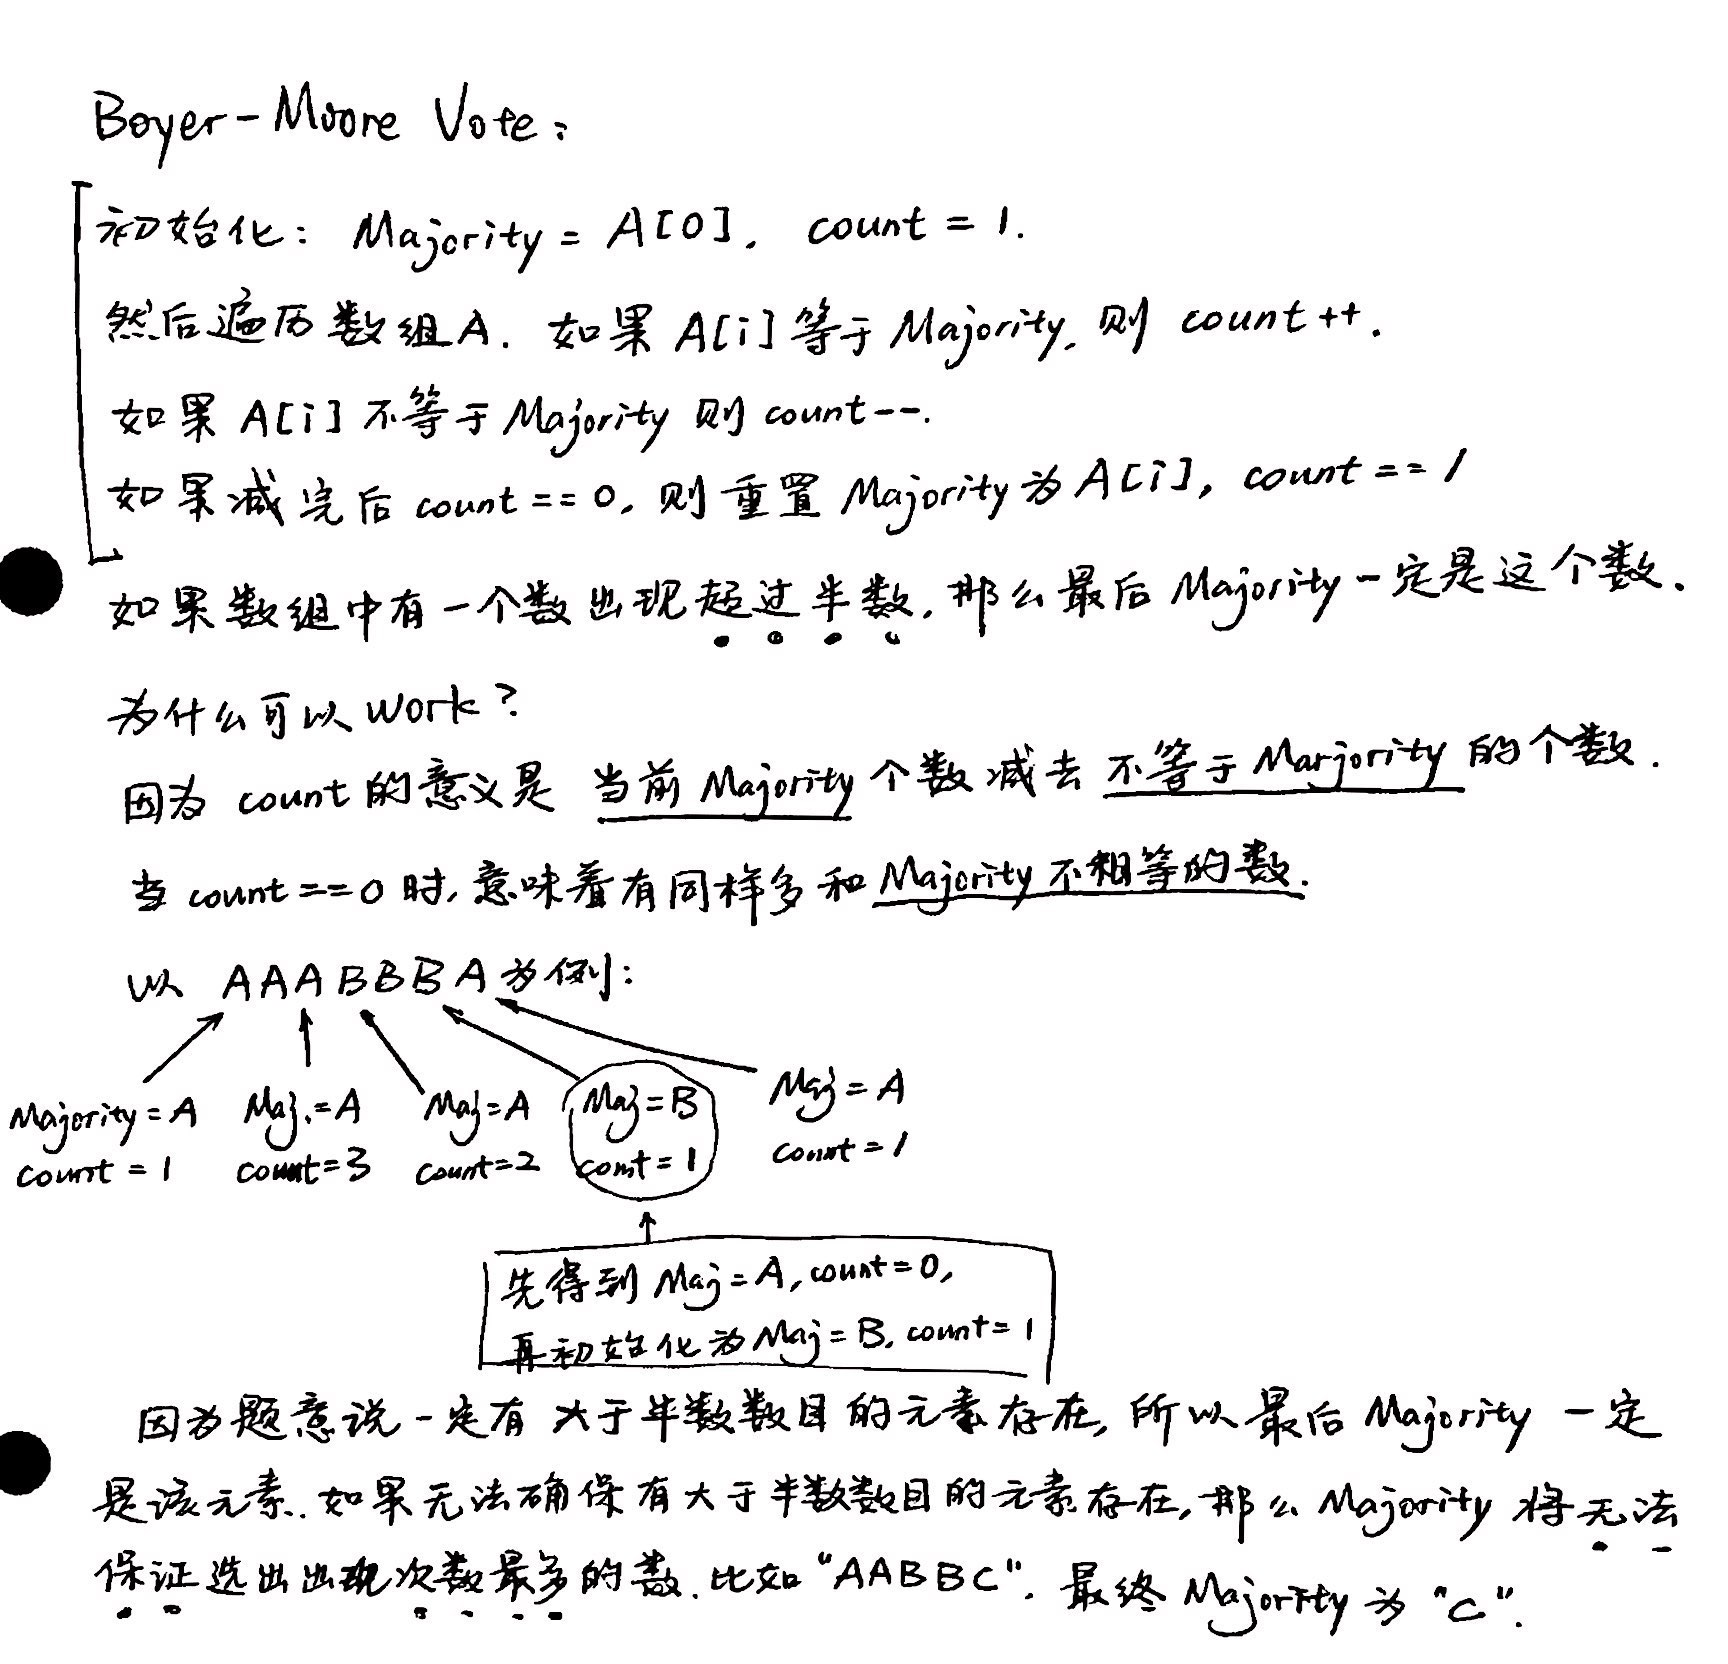 Boyer-Moore Vote:
初始化: Majority = A[0], count = 1.
然后遍历数组A. 如果 A[i] 等于 Majority, 则 count++.
如果 A[i] 不等于 Majority 则 count--.
如果减完后 count == 0, 则重置 Majority 为 A[i], count == 1
如果数组中有一个数出现超过半数, 那么最后 Majority 一定是这个数.
为什么可以 work?
因为 count 的意义是 当前 Majority 个数减去 不等于 Marjority 的个数.
当 count == 0 时, 意味着有同样多和 Majority 不相等的数.
以 AAABBBA 为例:
Majority = A Maj. = A Maj = A Maj = B Maj = A
count = 1 count = 3 count = 2 count = 1 count = 1
先得到 Maj = A, count = 0,
再初始化为 Maj = B, count = 1
因为题意说一定有大于半数数目的元素存在, 所以最后 Majority 一定
是该元素. 如果无法确保有大于半数数目的元素存在, 那么 Majority 将无法
保证选出出现次数最多的数. 比如 "AABBC". 最终 Majority 为 "C".